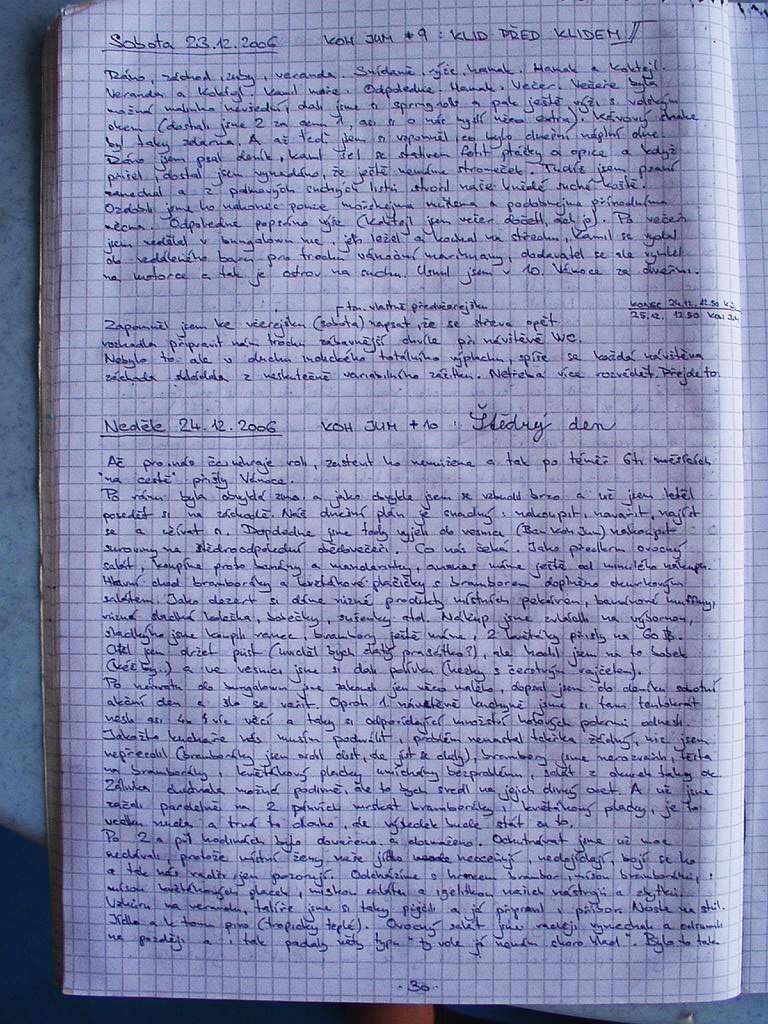 Sobota 23.12.2006 KOH JUM +9 : KLID PŘED KLIDEM
Ráno, záchod, zuby, veranda. Snídaně, rýže, hamak. Hamak a koktejl.
Veranda a koktejl. Kamil Odpoledne. Hamak. Večer. Večeře byla
možná malinko dali jsme si springrole a pak ještě rýži s volským
okem (dostali jsme 2 za cenu 1, asi si o nás myslí něco extra). Kávový shake
byl taky zdarma. A až teď jsem si vzpomněl, co bylo dnešní náplní dne.
Ráno jsem psal deník, Kamil šel se stativem fotit ptáčky a opice a když
přišel, dostal jsem vynadáno, že ještě nemáme stromeček. Tudíž jsem psaní
zanechal a z palmových suchých listů stvořil naše hnědé suché koště.
Ozdobili jsme ho nakonec pouze
Odpoledne poprvně rýže (koktejl jsem večer Po večeři
jsem nedělal v bungalovu nic, jen ležel a koukal na střechu, Kamil se vydal
do vedlejšího baru pro trochu vánoční marihuany, dodavatel se ale
na motorce a tak je ostrov na suchu. Usnul jsem v 10. Vánoce za dveřmi.
tzn. vlastně předvčerejšku
KONEC 24.12. 12.50 KJ
25.12. 12.50 KOH JUM
Zapomněl jsem ke včerejšku (sobota) napsat, že se střeva opět
rozhodla připravit nám trochu zábavnější chvíle při návštěvě WC.
Nebylo to ale v duchu indického totálního výplachu, spíše se každá návštěva
záchoda skládala z neskutečně variabilního zážitku. Netřeba více rozvádět. Přejde to.
Neděle 24.12.2006 KOH JUM +10 : Štědrý den
Ač pro nás čas nehraje roli, zastavit ho nemůžeme a tak po téměř 6ti měsících
"na cestě" přišly Vánoce.
Po ránu byla obvyklá zima a jako obvykle jsem se vzbudil brzo a už jsem letěl
posedět si na záchodě. Náš dnešní plán je snadný: nakoupit, navařit, najíst
se a užívat si. Dopoledne jsme tedy vyjeli do vesnice (Ban Koh Jum) nakoupit
suroviny na štědroodpolední dědovečeři. Co nás čeká. Jako předkrm ovocný
salát, koupíme proto banány a mandarinky, ananas máme ještě od minulého nákupu.
Hlavní chod bramboráky a květákové plačičky s bramborem doplněné okurkovým
salátem. Jako dezert si dáme různé produkty místních pekáren, banánové muffiny,
různá sladká kolečka, bábečky, sušenky atd. Nákup jsme zvládli na výbornou,
sladkýho jsme koupili ranec, brambory ještě máme, 2 květáky přišly na 60 B.
Chtěl jsem držet půst (uviděl bych zlatý prasátko?), ale hodil jsem na to bobek
a ve vesnici jsme si dali polívku (hezky s čerstvým rajčetem).
Po návratu do bungalovu jsme zakousli jen něco malého, dopsal jsem do deníku sobotní
akční den a šlo se vařit. Oproti 1. návštěvě kuchyně jsme si tam tentokrát
nesli asi 4x více věcí a taky si odpovídající množství hotových pokrmů odnesli.
Jakožto kuchaře nás musím pochválit, problém nenastal takřka žádný, nic jsem
nepřesolil (bramboráky jsem osolil dost, ale jíst se daly), brambory jsme nerozvařili, těsta
na bramboráky, květákový placky umíchány bezproblému, salát z okurek taky ok.
Zálivka chutnala možná podivně, ale to bych svedl na jejich divný ocet. A už jsme
začali paralelně na 2 pánvích smažit bramboráky i květákový placky, je to
vcelku nuda a trvá to dlouho, ale výsledek bude stát za to.
Po 2 a půl hodinách bylo dovařeno a dosmaženo. Ochutnávat jsme už moc
nedávali, protože místní ženy naše jídlo neocenují, nedojídají, bojí se ho
a tak nás radši jen pozorují. Odcházíme s hrncem brambor, mísou bramboráků,
mísou květákových placek, miskou salátu a igelitkou našich nástrojů a zbytků.
Vzhůru na verandu, talíře jsme si taky půjčili a já připravil i příbor. Noste na stůl.
Jídlo a k tomu pivo (tropicky teplé). Ovocný salát jsme raději vynechali a odsunuli
na později a i tak padaly věty typu "ty vole já nemám skoro hlad". Bylo to tak
- 30 -